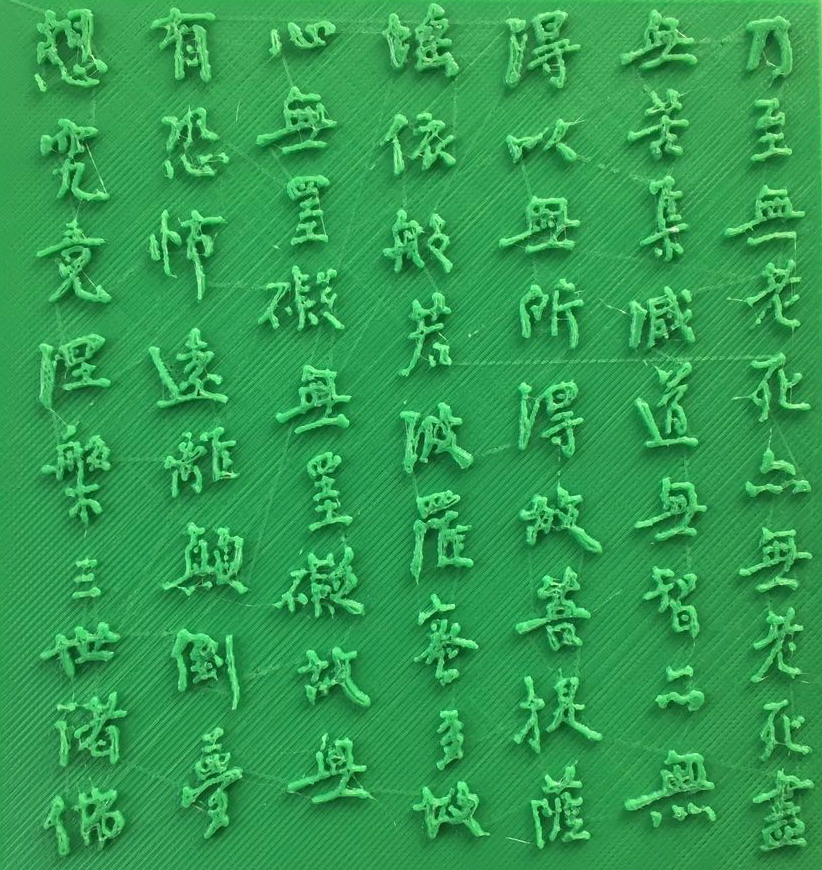 乃至無老死亦無老死盡
無苦集滅道無智亦無
得以無所得故菩提薩
埵依般若波羅蜜多故
心無罣礙無罣礙故無
有恐怖遠離顛倒夢
想究竟涅槃三世諸佛